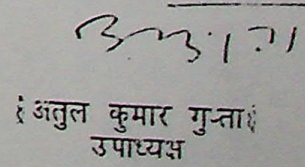 {अतुल कुमार गुप्ता}
उपाध्यक्ष